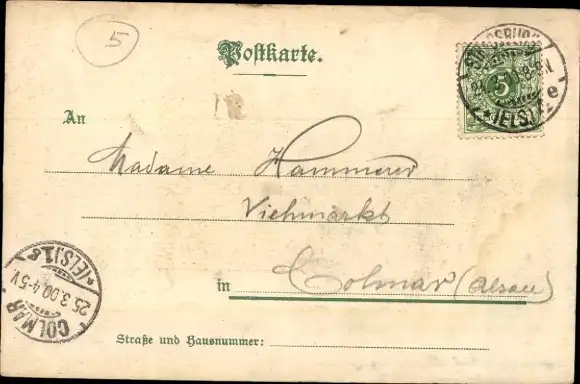 5
Postkarte.
5
(ELS.)
e
An
Madame Hammerer
Viehmarkt
in Colmar (Alsace)
COLMAR
25.3.00.4-5V.
*(ELS.)1g
Straße und Hausnummer: